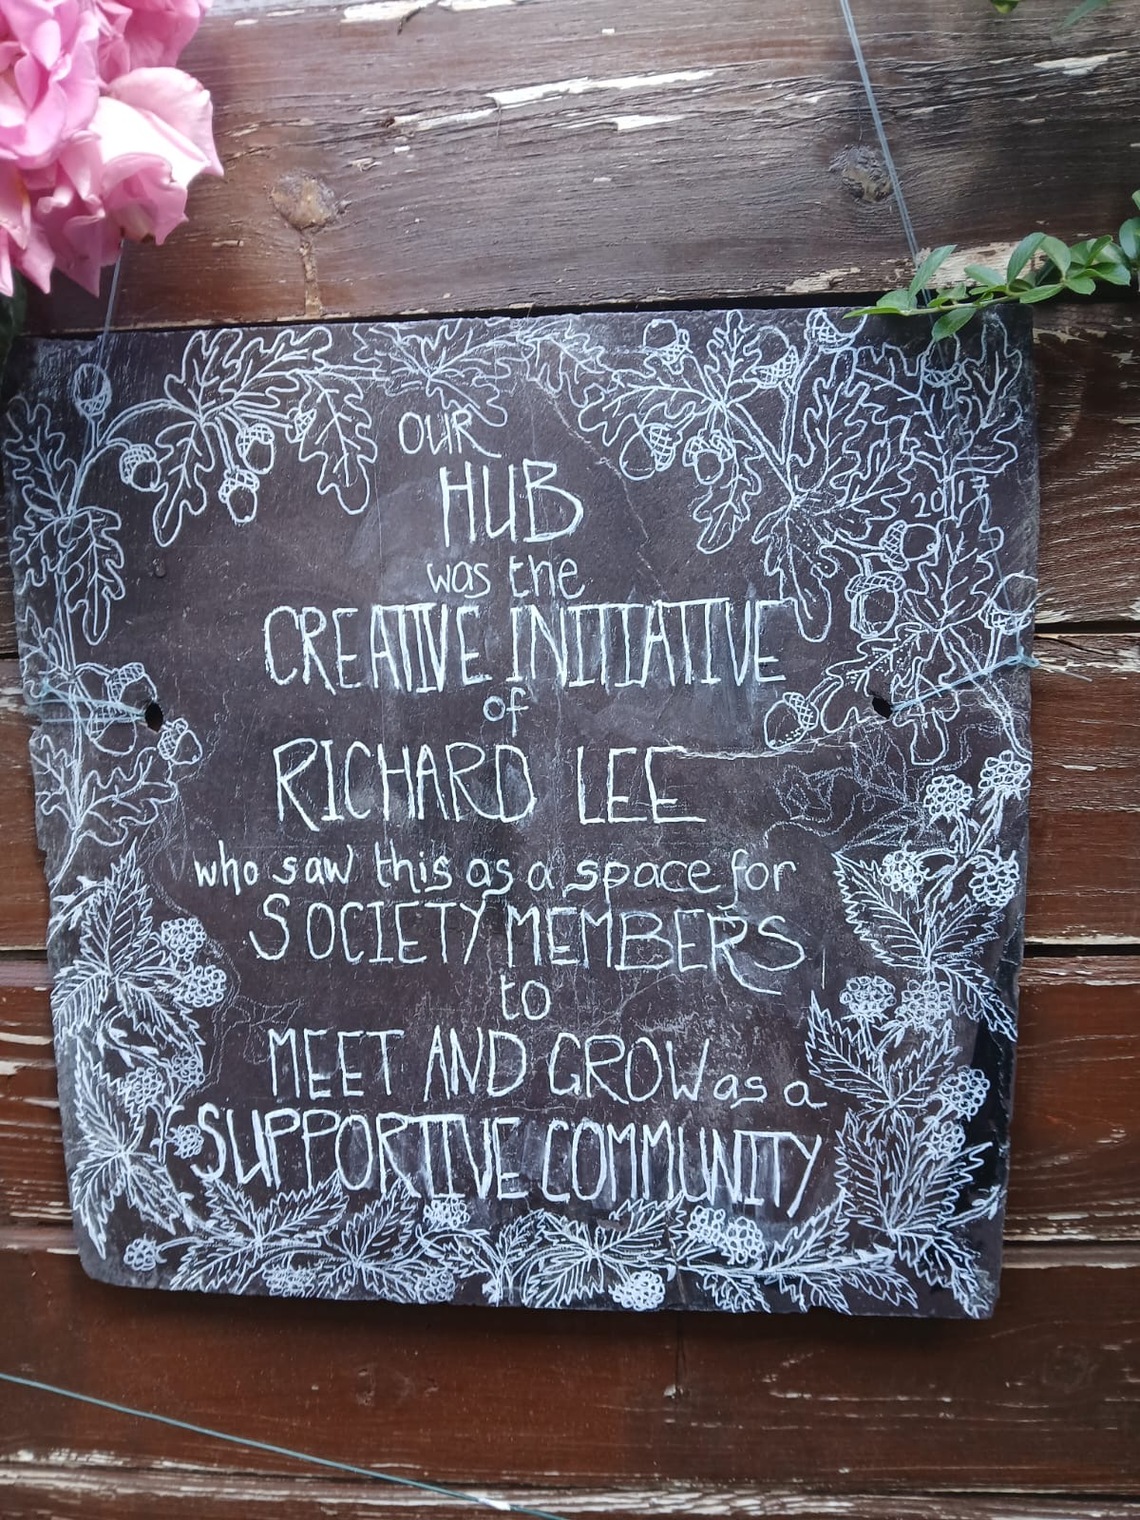 OUR
HUB
was the
CREATIVE INITIATIVE
of
RICHARD LEE
who saw this as a space for
SOCIETY MEMBERS
to
MEET AND GROW as a
SUPPORTIVE COMMUNITY
2017